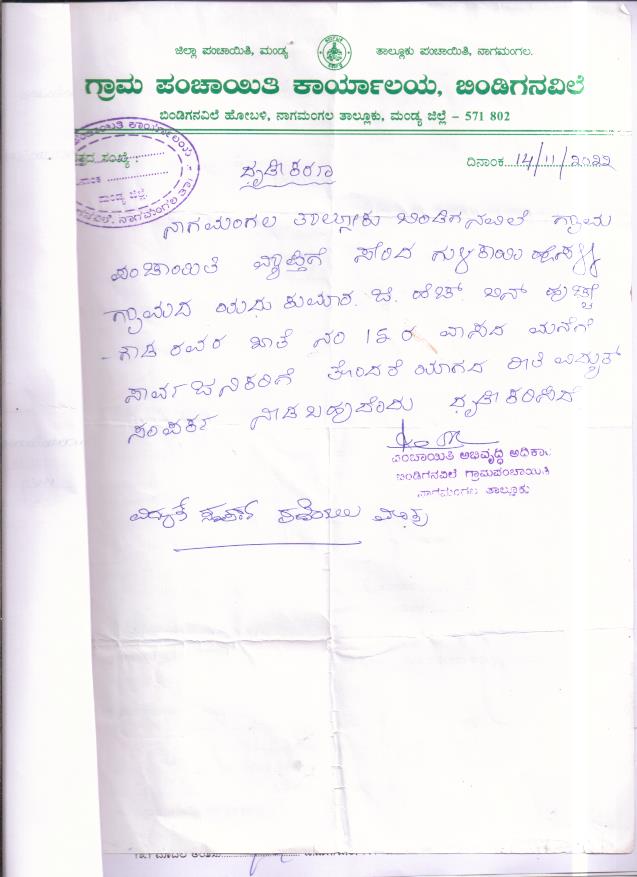 ಜಿಲ್ಲಾ ಪಂಚಾಯಿತಿ, ಮಂಡ್ಯ ತಾಲ್ಲೂಕು ಪಂಚಾಯಿತಿ, ನಾಗಮಂಗಲ.
ಗ್ರಾಮ ಪಂಚಾಯಿತಿ ಕಾರ್ಯಾಲಯ, ಬಿಂಡಿಗನವಿಲೆ
ಬಿಂಡಿಗನವಿಲೆ ಹೋಬಳಿ, ನಾಗಮಂಗಲ ತಾಲ್ಲೂಕು, ಮಂಡ್ಯ ಜಿಲ್ಲೆ - 571 802
ಪಂಚಾಯಿತಿ ಕಾರ್ಯಾಲಯ
ಸಂಖ್ಯೆ:
ಮಂಡ್ಯ ಜಿಲ್ಲೆ.
ದಿನಾಂಕ 14/11/2022
ದೃಢೀಕರಣ
ನಾಗಮಂಗಲ ತಾಲ್ಲೂಕು ಬಿಂಡಿಗನವಿಲೆ ಗ್ರಾಮ
ಪಂಚಾಯಿತಿ ವ್ಯಾಪ್ತಿಗೆ ಸೇರಿದ
ಗ್ರಾಮದ ಯದು ಕುಮಾರ. ಜೆ. ಹೆಚ್. ಬಿನ್
ಗೌಡ ರವರ ಖಾತೆ ನಂ 15 ರ ವಾಸದ ಮನೆಗೆ
ಸಾರ್ವಜನಿಕರಿಗೆ ತೊಂದರೆಯಾಗದ ರೀತಿ ವಿದ್ಯುತ್
ಸಂಪರ್ಕ ನೀಡಬಹುದೆಂದು ದೃಢೀಕರಿಸಿದೆ
ಪಂಚಾಯಿತಿ ಅಭಿವೃದ್ಧಿ ಅಧಿಕಾರಿ
ಬಿಂಡಿಗನವಿಲೆ ಗ್ರಾಮಪಂಚಾಯಿತಿ
ನಾಗಮಂಗಲ ತಾಲ್ಲೂಕು
ಪಡೆಯಲು ಮಾತ್ರ